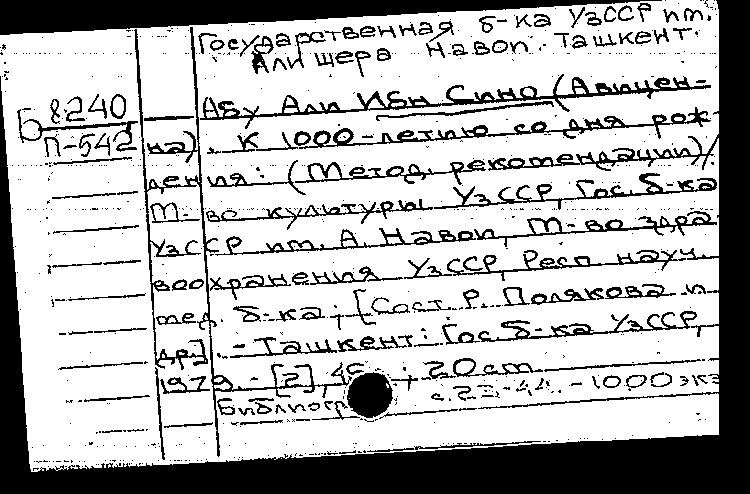 Государственная б-ка УзССР им.
Алишера Навои. Ташкент.
Б 8240
П-542
Абу Али Ибн Сино (Авицен-
на). К 1000-летию со дня рож-
дения: (Метод. рекомендации)/
М-во культуры УзССР, Гос. б-ка
УзССР им. А. Навои, М-во здра-
воохранения УзССР, Респ. науч.
мед. б-ка; [Сост. Р. Полякова и
др.]. - Ташкент: Гос. б-ка УзССР,
1979. - [2], ; 20 см.
Библиогр с. 23-44. - 1000 экз